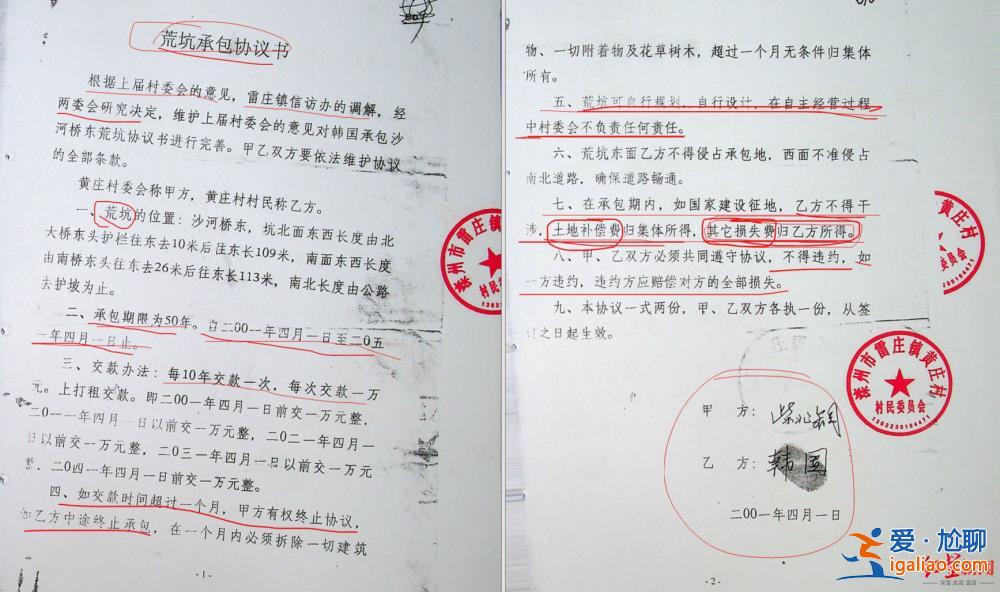 荒坑承包协议书
根据上届村委会的意见，雷庄镇信访办的调解，经
两委会研究决定，维护上届村委会的意见对韩国承包沙
河桥东荒坑协议书进行完善。甲乙双方要依法维护协议
的全部条款。
黄庄村委会称甲方，黄庄村村民称乙方。
一、荒坑的位置：沙河桥东，坑北面东西长度由北
大桥东头护栏往东去10米后往东长109米，南面东西长度
由南桥东头往东去26米后往东长113米，南北长度由公路
去护坡为止。
二、承包期限为50年。自二00一年四月一日至二0五
一年四月一日止。
三、交款办法：每10年交款一次，每次交款一万
元。上打租交款。即二00一年四月一日前交一万元整，
二0一一年四月一日以前交一万元整，二0二一年四月一
日以前交一万元整，二0三一年四月一日以前交一万元
整，二0四一年四月一日前交一万元整。
四、如交款时间超过一个月，甲方有权终止协议，
如乙方中途终止承包，在一个月内必须拆除一切建筑
-1-
物、一切附着物及花草树木，超过一个月无条件归集体
所有。
五、荒坑可自行规划，自行设计，在自主经营过程
中村委会不负责任何责任。
六、荒坑东面乙方不得侵占承包地，西面不准侵占
南北道路，确保道路畅通。
七、在承包期内，如国家建设征地，乙方不得干
涉，土地补偿费归集体所得，其它损失费归乙方所得。
八、甲、乙双方必须共同遵守协议，不得违约，如
一方违约，违约方应赔偿对方的全部损失。
九、本协议一式两份，甲、乙双方各执一份，从签
订之日起生效。
甲 方：
乙 方：韩国
二00一年四月一日
-2-
滦州市雷庄镇黄庄村
村民委员会
1302230184471
爱·尬聊
igaliao.com